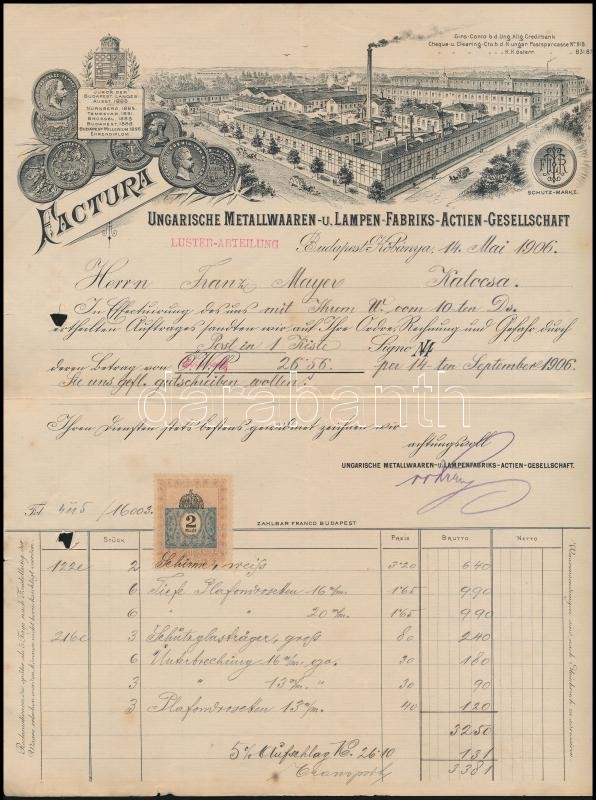 Giro-Conto b.d. Ung. Allg. Creditbank
Cheque-u. Clearing-Cto. b.d. K. ungar. Postsparcasse No 918.
K.K. österr. 831.81
JUROR DER
BUDAPEST. LANDES
AUSST. 1885.
NÜRNBERG, 1885.
TEMESVAR, 1891.
BRÜSSEL, 1888.
BUDAPEST, 1888.
BUDAPEST MILLENIUM 1896
EHRENDIPLOM.
SCHUTZ-MARKE.
FACTURA
UNGARISCHE METALLWAAREN-U. LAMPEN-FABRIKS-ACTIEN-GESELLSCHAFT
LUSTER-ABTEILUNG
Budapest-Kőbánya, 14. Mai 1906.
Herrn Franz Mayer Kalocsa.
In Effectuirung des uns mit Ihrem W. vom 10-ten Ds.
ertheilten Auftrages sandten wir auf Ihre Ordre, Rechnung und Gefahr durch
Post in 1 Kiste Signo
deren Betrag von 26.56. per 14-ten September 1906.
Sie uns gefl. gutschreiben wollen.
darabanth
Ihren Diensten stets bestens gewidmet zeichnen wir
achtungsvoll
UNGARISCHE METALLWAAREN-U. LAMPENFABRIKS-ACTIEN-GESELLSCHAFT.
/16003.
2
ZAHLBAR FRANCO BUDAPEST
STÜCK PREIS BRUTTO NETTO
122e 2 Schirme, weiß 3.20 6.40
6 Tiefe Plafondrosetten 16 c/m. 1.65 9.90
6 " " 20 c/m. 1.65 9.90
216c 3 Schutzglasträger, groß 80 2.40
6 Unterbrechung 16 c/m. 30 1.80
3 " 13 c/m. " 30 90
3 Plafondrosetten 13 c/m. 40 1.20
32.50
5% Aufschlag K. 26.10 1.31
Transport 33.81